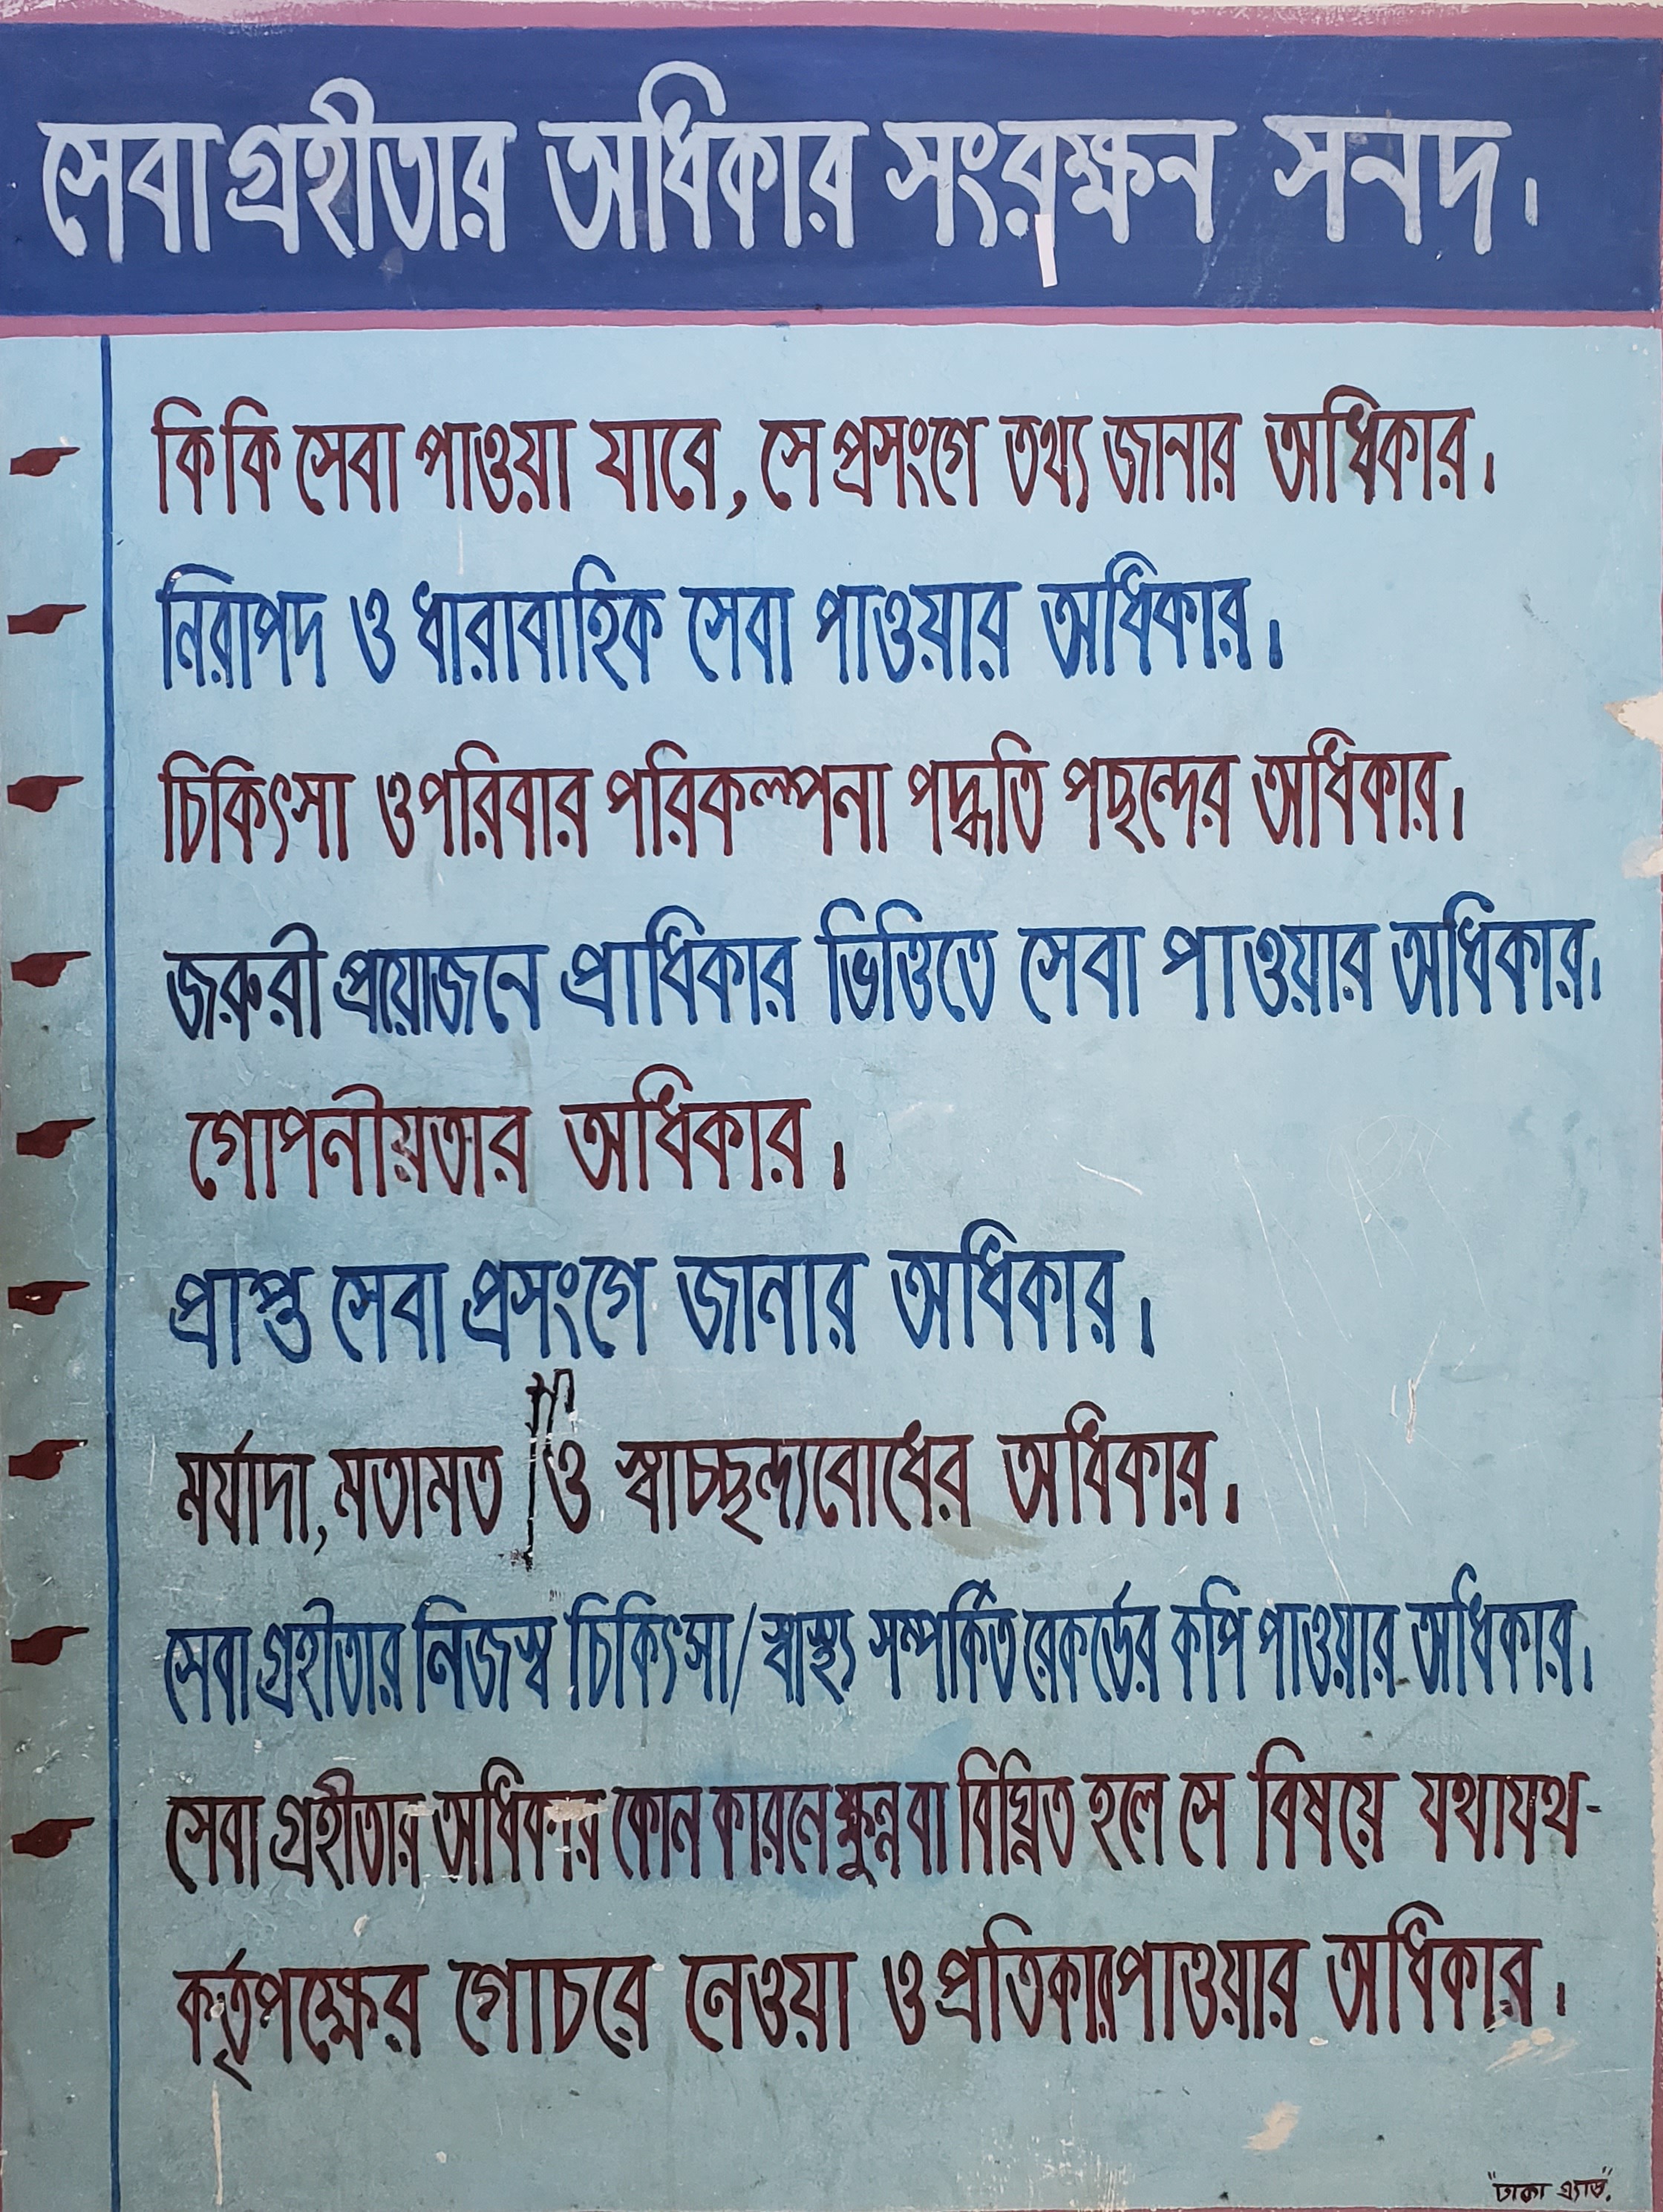 সেবা গ্রহীতার অধিকার সংরক্ষন সনদ।
কি কি সেবা পাওয়া যাবে, সে প্রসংগে তথ্য জানার অধিকার।
নিরাপদ ও ধারাবাহিক সেবা পাওয়ার অধিকার।
চিকিৎসা ও পরিবার পরিকল্পনা পদ্ধতি পছন্দের অধিকার।
জরুরী প্রয়োজনে প্রাধিকার ভিত্তিতে সেবা পাওয়ার অধিকার।
গোপনীয়তার অধিকার।
প্রাপ্ত সেবা প্রসংগে জানার অধিকার।
মর্যাদা, মতামত ও স্বাচ্ছন্দ্যবোধের অধিকার।
সেবা গ্রহীতার নিজস্ব চিকিৎসা/স্বাস্থ্য সম্পর্কিত রেকর্ডের কপি পাওয়ার অধিকার।
সেবা গ্রহীতার অধিকার কোন কারনে ক্ষুন্ন বা বিঘ্নিত হলে সে বিষয়ে যথাযথ-
কর্তৃপক্ষের গোচরে নেওয়া ও প্রতিকার পাওয়ার অধিকার।
"ঢাকা এ্যাড"